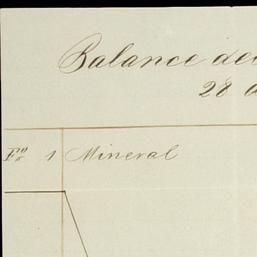 Balance de
28
Fo 1 Mineral